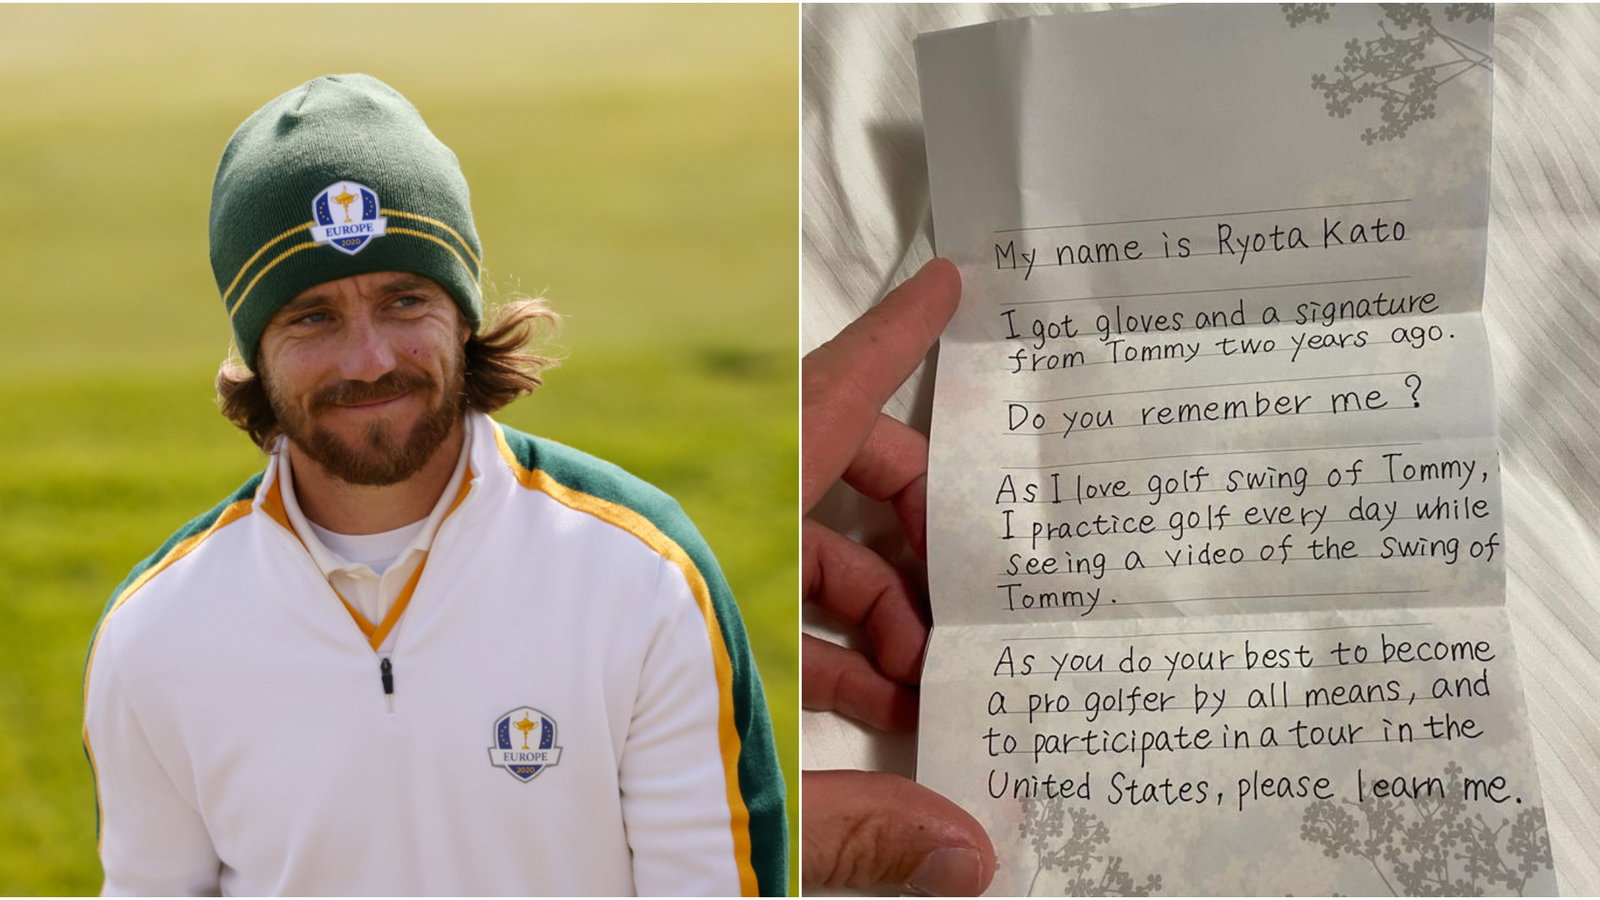 EUROPE
2020
EUROPE
2020
My name is Ryota Kato
I got gloves and a signature
from Tommy two years ago.
Do you remember me?
As I love golf swing of Tommy,
I practice golf every day while
seeing a video of the swing of
Tommy.
As you do your best to become
a pro golfer by all means, and
to participate in a tour in the
United States, please learn me.